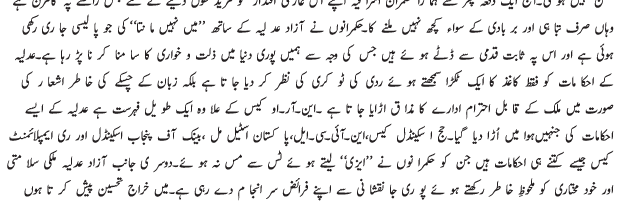 وہاں صرف تباہی اور بربادی کے سواء کچھ نہیں ملنے کا۔حکمرانوں نے آزاد عدلیہ کے ساتھ ’’میں نہیں مانتا‘‘ کی جو پالیسی جاری رکھی
ہوئی ہے اور اس پہ ثابت قدمی سے ڈٹے ہوئے ہیں جس کی وجہ سے ہمیں پوری دنیا میں ذلت و خواری کا سامنا کرنا پڑ رہا ہے۔عدلیہ
کے احکامات کو فقط کاغذ کا ایک ٹکڑا سمجھتے ہوئے ردی کی ٹوکری کی نظر کر دیا جاتا ہے بلکہ زبان کے چسکے کی خاطر اشعار کی
صورت میں ملک کے قابل احترام ادارے کا مذاق اڑایا جاتا ہے ۔این۔آر۔او کیس کے علاوہ ایک طویل فہرست ہے عدلیہ کے ایسے
احکامات کی جنہیں ہوا میں اُڑا دیا گیا۔حج اسکینڈل کیس،این۔آئی۔سی۔ایل،پاکستان اسٹیل مل ،بینک آف پنجاب اسکینڈل اور ری ایمپلائمنٹ
کیس جیسے کتنے ہی احکامات ہیں جن کو حکمرانوں نے ’’ایزی‘‘ لیتے ہوئے ٹس سے مس نہ ہوئے۔دوسری جانب آزاد عدلیہ ملکی سلامتی
اور خود مختاری کو ملحوظِ خاطر رکھتے ہوئے پوری جانفشانی سے اپنے فرائض سر انجام دے رہی ہے۔میں خراج تحسین پیش کرتا ہوں